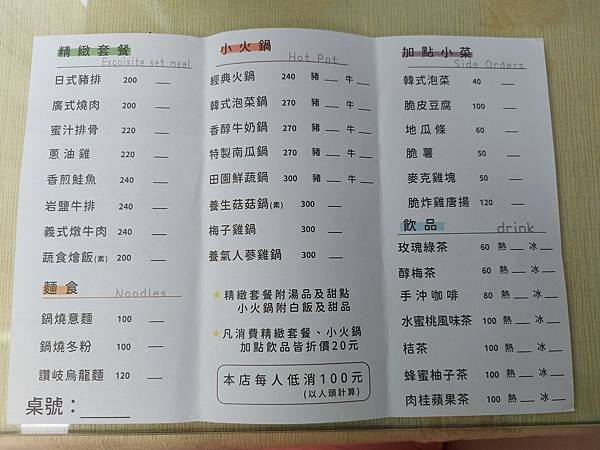 精緻套餐
Exquisite set meal
日式豬排 200 __
廣式燒肉 200 __
蜜汁排骨 220 __
蔥油雞 220 __
香煎鮭魚 240 __
岩鹽牛排 240 __
義式燉牛肉 240 __
蔬食燴飯(素) 200 __
麵食
Noodles
鍋燒意麵 100 __
鍋燒冬粉 100 __
讚岐烏龍麵 120 __
桌號：_____
小火鍋
Hot Pot
經典火鍋 240 豬__牛__
韓式泡菜鍋 270 豬__牛__
香醇牛奶鍋 270 豬__牛__
特製南瓜鍋 270 豬__牛__
田園鮮蔬鍋 300 豬__牛__
養生菇菇鍋(素) 300 __
梅子雞鍋 300 __
養氣人蔘雞鍋 300 __
★精緻套餐附湯品及甜點
小火鍋附白飯及甜品
★凡消費精緻套餐、小火鍋
加點飲品皆折價20元
本店每人低消100元
(以人頭計算)
加點小菜
Side Orders
韓式泡菜 40 __
脆皮豆腐 100 __
地瓜條 60 __
脆薯 50 __
麥克雞塊 50 __
脆炸雞唐揚 120 __
飲品
drink
玫瑰綠茶 60 熱__冰__
醇梅茶 60 熱__冰__
手沖咖啡 80 熱__冰__
水蜜桃風味茶 100 熱__冰__
桔茶 100 熱__冰__
蜂蜜柚子茶 100 熱__冰__
肉桂蘋果茶 100 熱__冰__